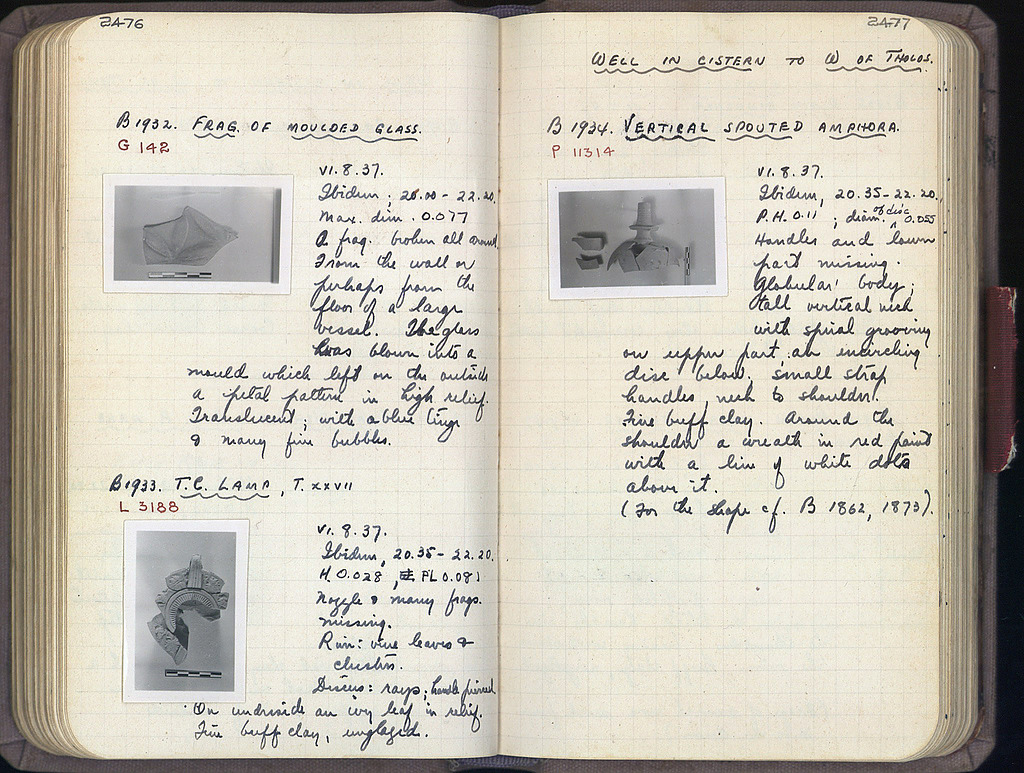 2476
B 1932. FRAG. OF MOULDED GLASS.
G 142
VI. 8. 37.
Ibidem; 20.00 - 22.20.
Max. dim. 0.077
A frag. broken all around
From the wall or
perhaps from the
floor of a large
vessel. The glass
was blown into a
mould which left on the outside
a petal pattern in high relief.
Translucent; with a blue tinge
& many fine bubbles.
B 1933. T.C. LAMP, T. XXVII
L 3188
VI. 8. 37.
Ibidem, 20.35 - 22.20.
H. 0.028, PL 0.081
Nozzle & many frags.
missing.
Rim: vine leaves &
clusters.
Discus: rays; handle pierced
On underside an ivy leaf in relief.
Fine buff clay, unglazed.
2477
WELL IN CISTERN TO W OF THOLOS.
B 1934. VERTICAL SPOUTED AMPHORA.
P 11314
VI. 8. 37.
Ibidem, 20.35 - 22.20.
P.H. 0.11; diam. of disc 0.055
Handles and lower
part missing.
Globular body;
tall vertical neck
with spiral grooving
on upper part, an encircling
disc below. Small strap
handles, neck to shoulder.
Fine buff clay. Around the
shoulder a wreath in red paint
with a line of white dots
above it.
(For the shape cf. B 1862, 1873).